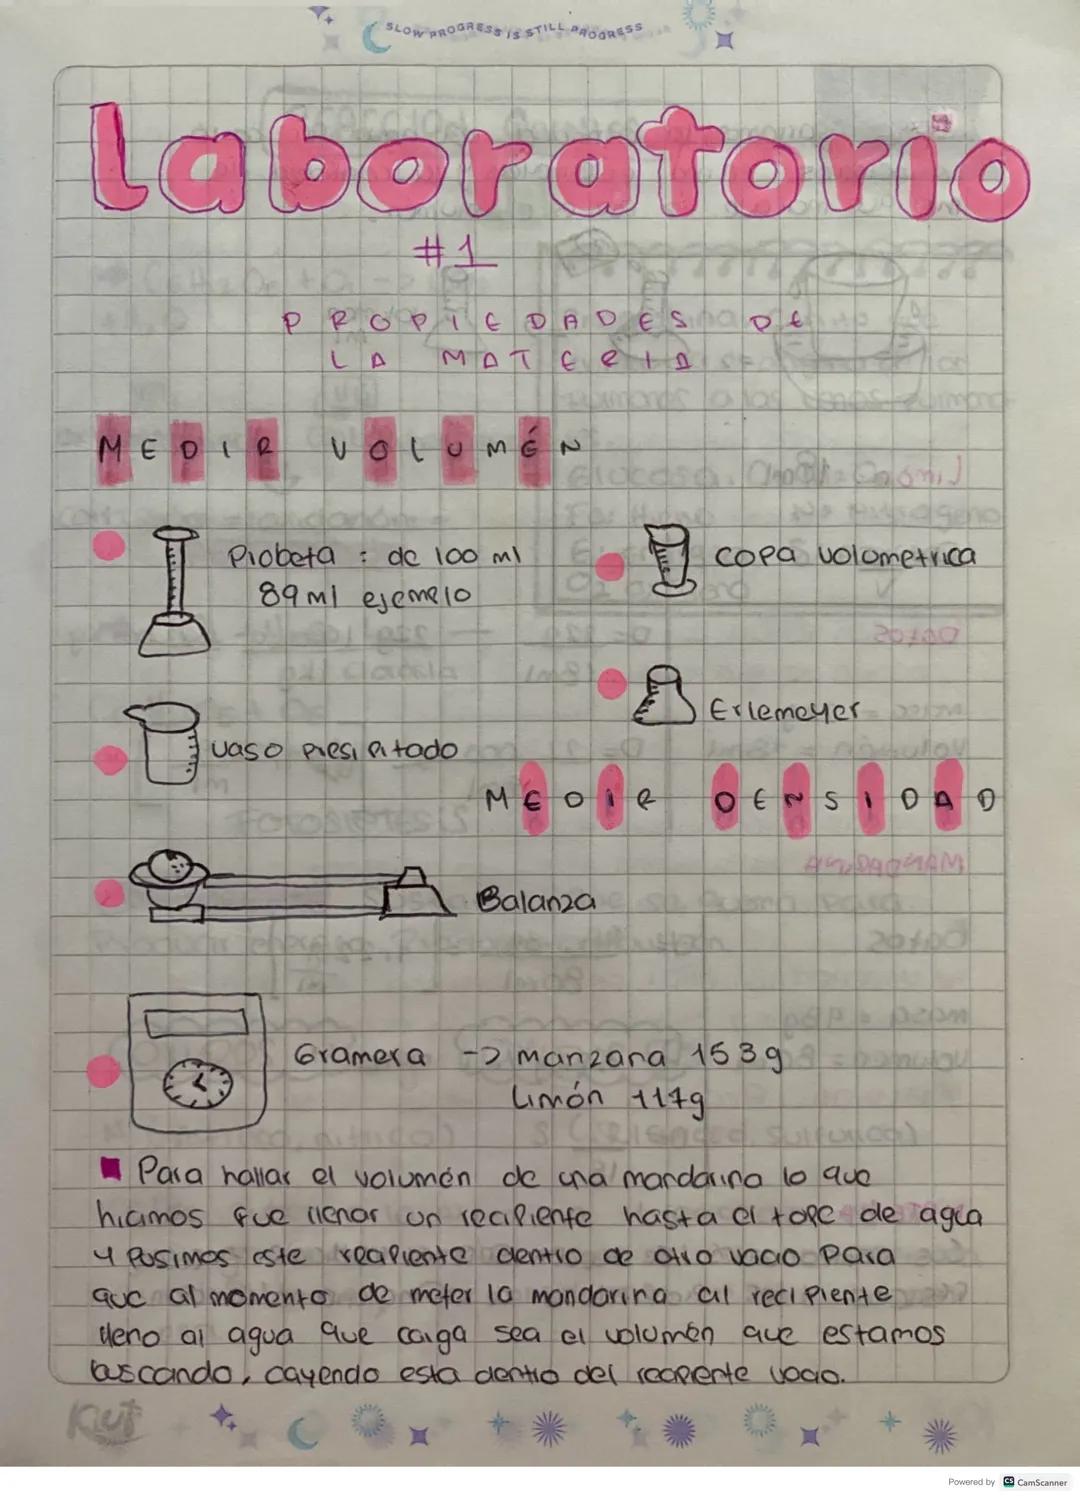 SLOW PROGRESS IS STILL PROGRESS
Laboratorio
#1
PROPIEDADES DE
LA MATERIA
MEDIR VOLUMÉN
Probeta : de 100 ml
89ml ejemplo
copa volumetrica
Erlemeyer
vaso presipitado
MEDIR DENSIDAD
Balanza
Gramera -> manzana 153g
Limón 117g
Para hallar el volumén de una mandarina lo que
hicimos fue llenar un recipiente hasta el tope de agua
y pusimos este recipiente dentro de otro vacio para
que al momento de meter la mandarina al recipiente
lleno al agua que caiga sea el volumén que estamos
buscando, cayendo esta dentro del recipiente vacio.
Kiut
Powered by CS CamScanner